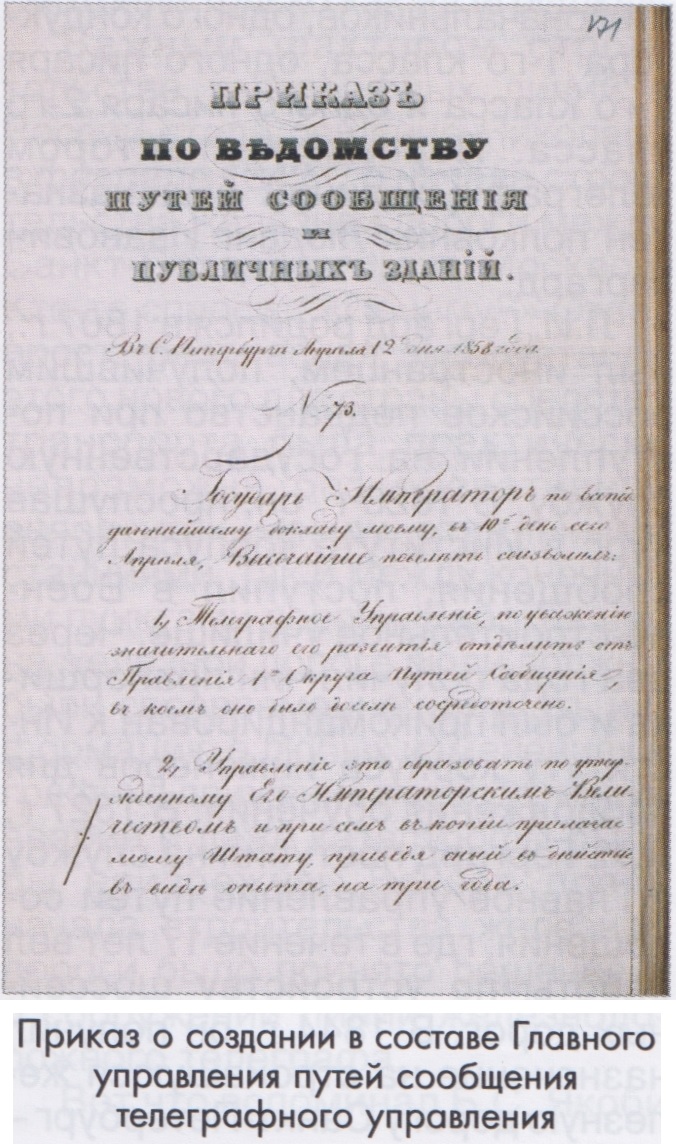 171
ПРИКАЗЪ
ПО ВѢДОМСТВУ
ПУТЕЙ СООБЩЕНІЯ
И
ПУБЛИЧНЫХЪ ЗДАНІЙ.
Въ С. Петербургѣ Апрѣля 12 дня 1858 года.
N 73.
Государь Императоръ по всепод
даннѣйшему докладу моему, въ 10й день сего
Апрѣля, Высочайше повелѣть соизволилъ:
1, Телеграфное Управленіе, по уваженію
значительнаго его развитія отдѣлить отъ
Правленія 1го Округа Путей Сообщенія,
въ коемъ оно было доселѣ сосредоточено.
2, Управленіе это образовать по утвер
жденному Его Императорскимъ Вели
чествомъ и при семъ въ копіи прилагае
мому Штату, приведя оный въ дѣйствіе,
въ видѣ опыта, на три года.
Приказ о создании в составе Главного
управления путей сообщения
телеграфного управления